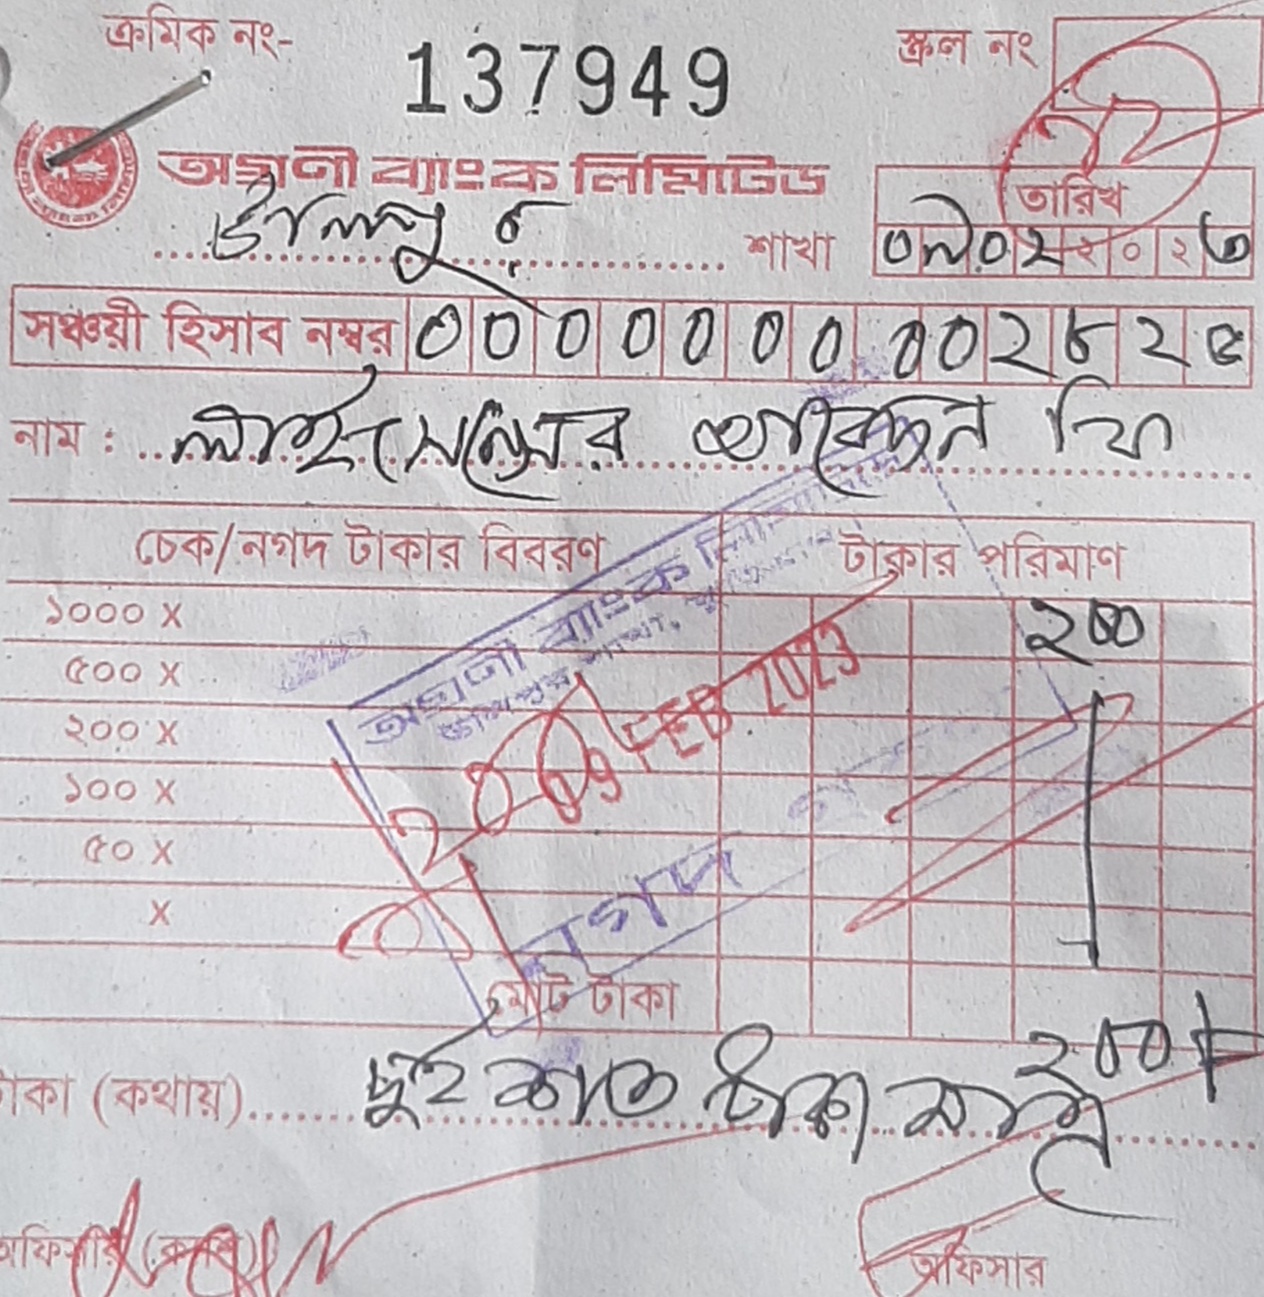 ক্রমিক নং- 137949 স্ক্রল নং
অগ্রণী ব্যাংক লিমিটেড
তারিখ
উলিপুর শাখা ০৯০২২০২৩
সঞ্চয়ী হিসাব নম্বর ০০০০০০০০০২৮২৫
নাম : লাইসেন্সের আবেদন ফি
চেক/নগদ টাকার বিবরণ টাকার পরিমাণ
১০০০ X ২০০
৫০০ X
২০০ X
১০০ X
৫০ X
X
অগ্রণী ব্যাংক লিমিটেড
উলিপুর শাখা, কুড়িগ্রাম
09 FEB 2023
নগদ
মোট টাকা
২০০/-
টাকা (কথায়) দুই শত টাকা মাত্র
অফিসার (ক্যাশ) অফিসার